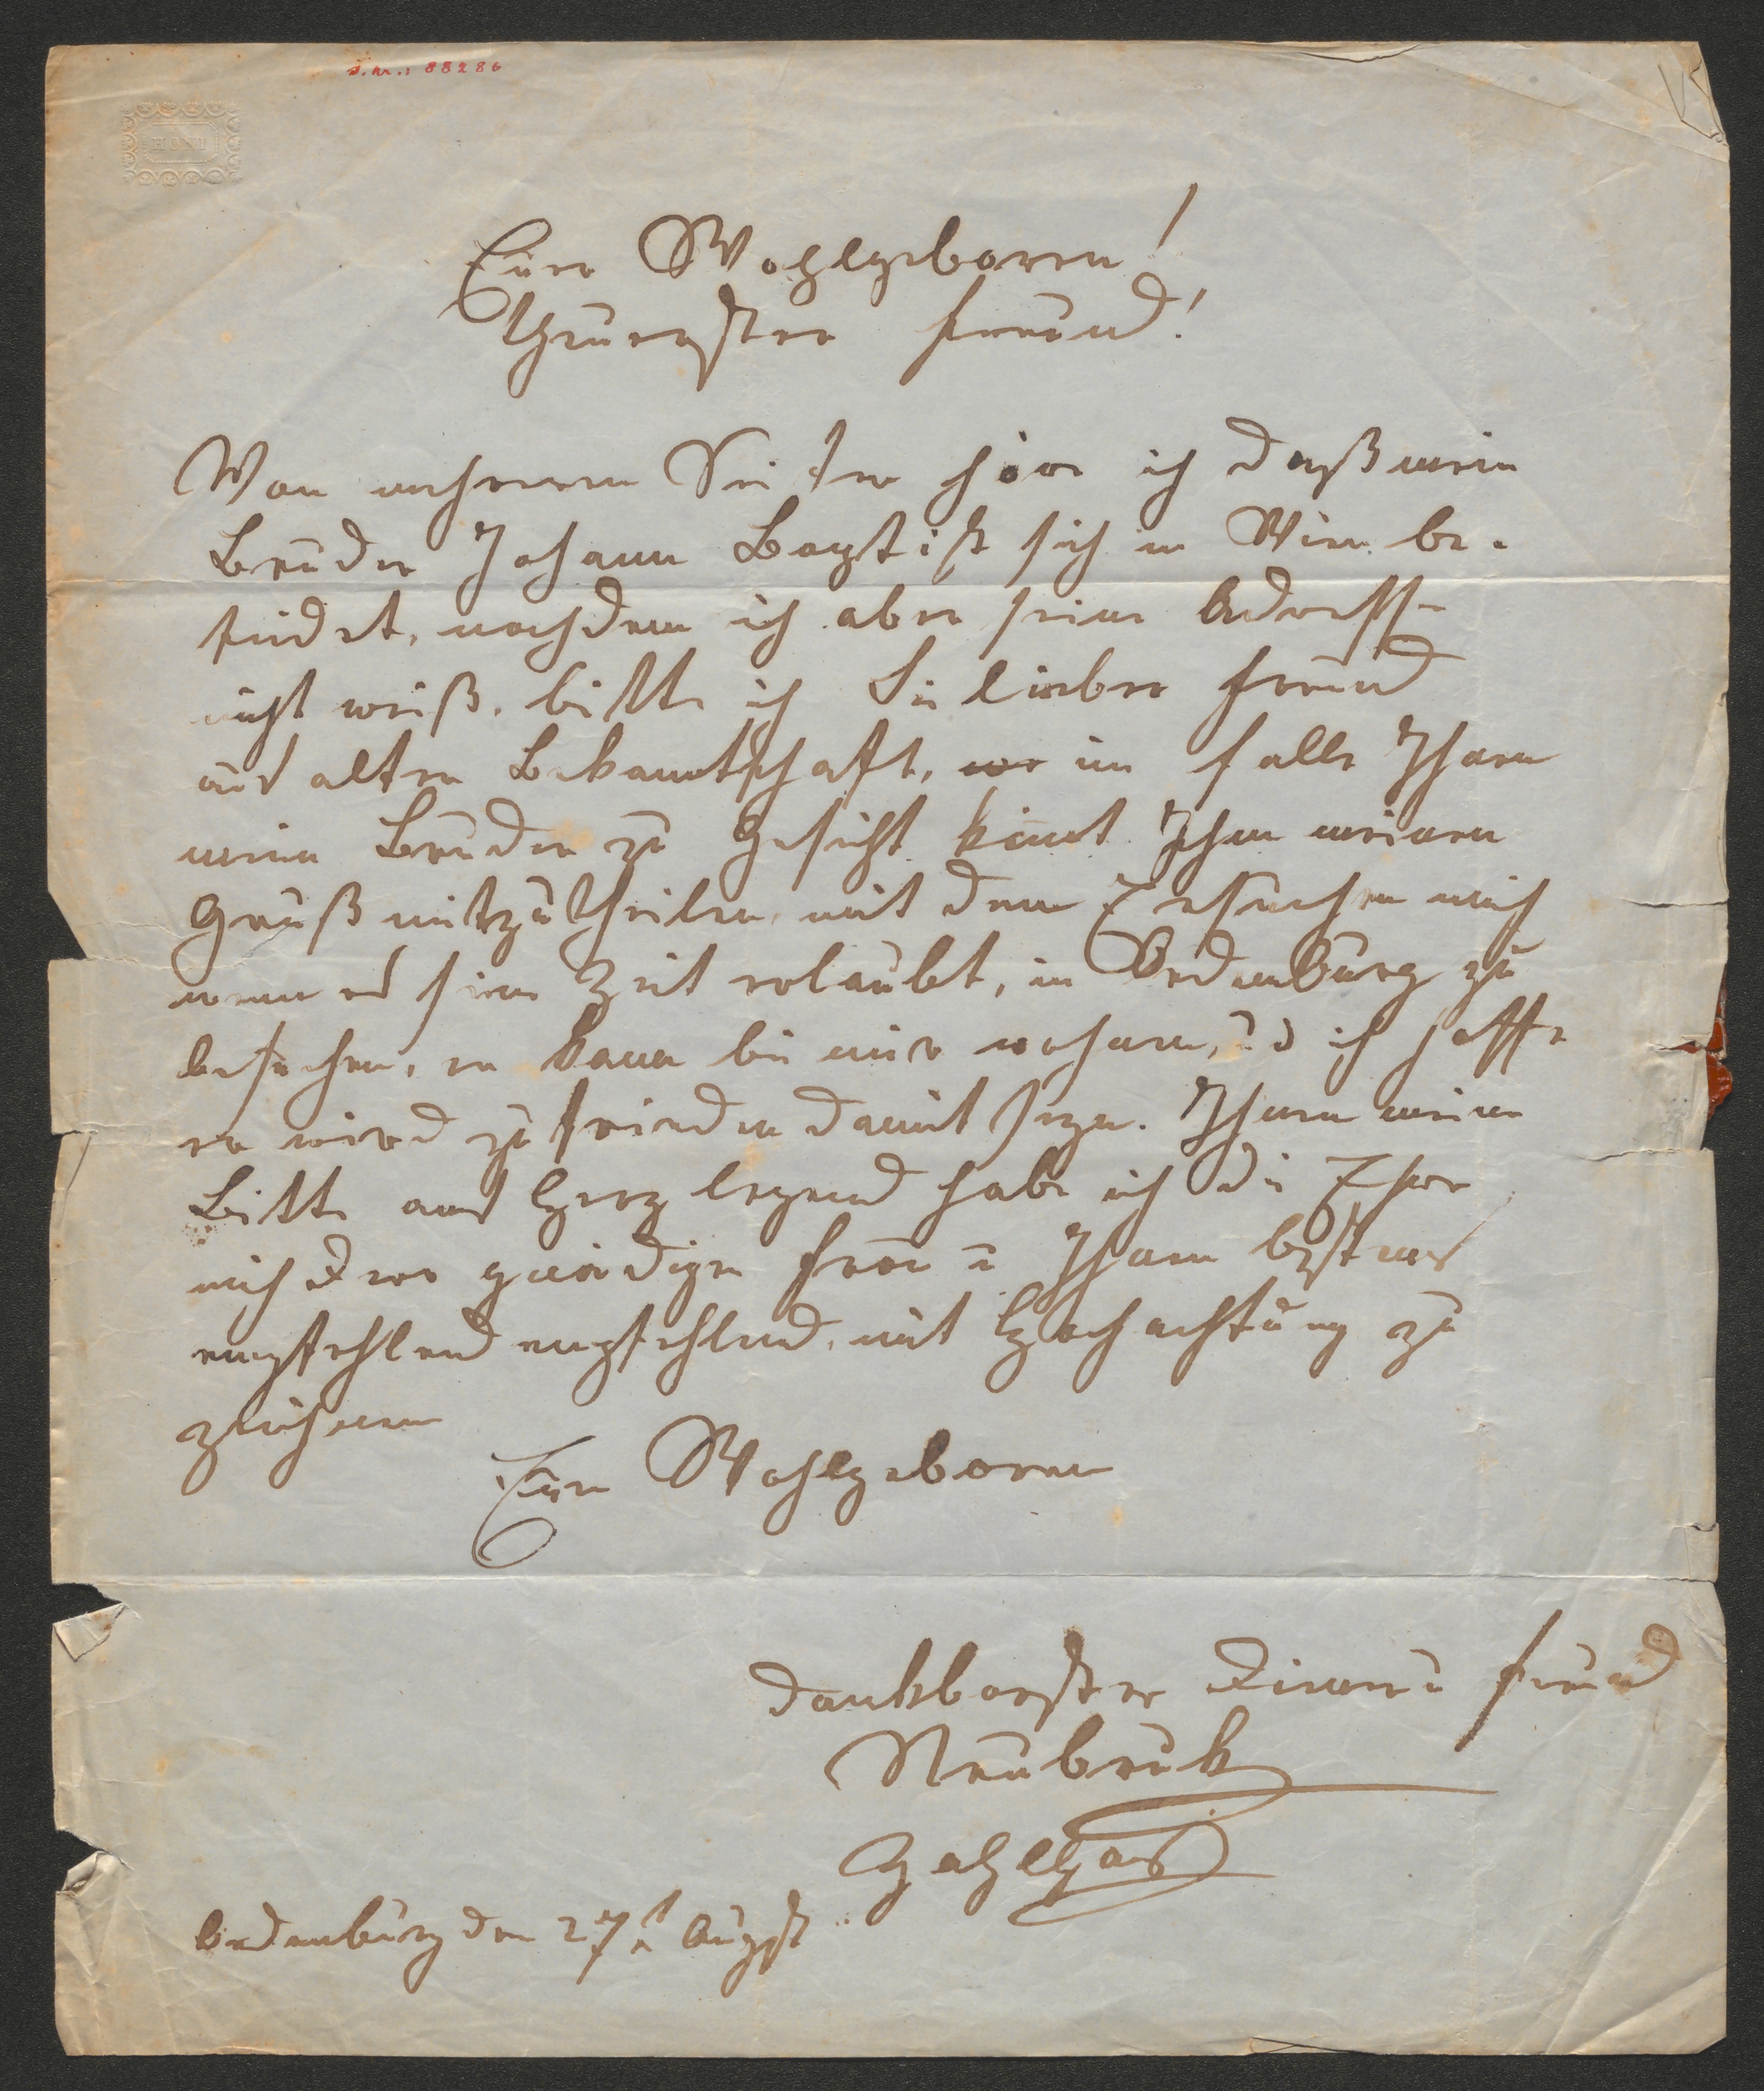 J. Nr.: 88286
HONI
Euer Wohlgeboren!
Theuerster Freund!
Von mehreren Seiten höre ich daß mein
Bruder Johann Baptist sich in Wien be-
findet, nachdem ich aber seine Adresse
nicht weiß, bitte ich Sie lieber Freund
aus alter Bekanntschaft, im falle Ihnen
mein Bruder zu Gesicht kömt Ihm meinen
Gruß mitzutheilen, mit dem Ersuchen mich
wenn es seine Zeit erlaubt, in Oedenburg zu
besuchen, er kann bei mir wohnen, und ich hoffe
er wird zufrieden damit seyn. Ihnen meine
Bitte ans Herz legend habe ich die Ehre
mich der gnädigen Frau u Ihnen bestens
empfehlend empfehlend, mit Hochachtung zu
zeichnen
Euer Wohlgeboren
dankbarster Diener u Freund
Neubruk
Oedenburg den 27t August